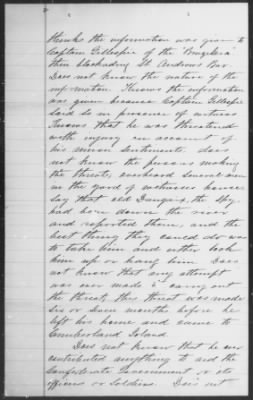 thinks the information was given to
Captain Gillespie of the "Braziliera"
then blockading St Andrews Bar
Does not know the nature of the
information. Knows the information
was given because Captain Gillespie
said so in presence of witness
Knows that he was threatened
with injury on account of
his union sentiments. does
not know the persons making
the threats, overheard several men
in the yard of witnesses house
say that old the Spy
had been down the river
and reported them, and the
best thing they could do was
to take him and either lock
him up or hang him. Does
not know that any attempt
was ever made to carry out
the threat, this threat was made
six or seven months before he
left his home and came to
Cumberland Island.
Does not know that he ever
contributed anything to aid the
Confederate Government or its
officers or Soldiers. Does not